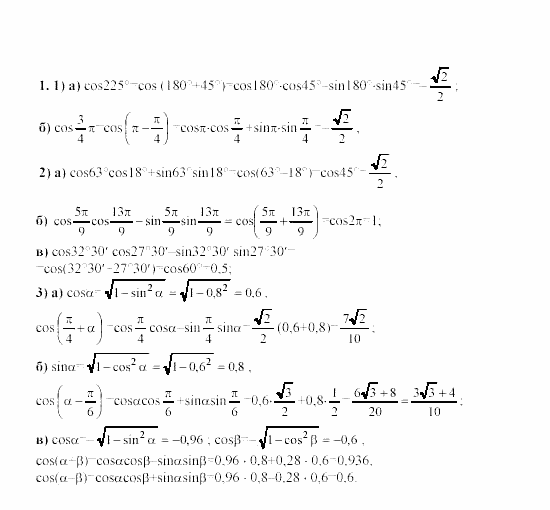 1. 1) а) cos225°=cos (180°+45°)=cos180°·cos45°–sin180°·sin45°=–√2/2 ;
б) cos 3/4 π=cos(π – π/4) =cosπ·cos π/4 +sinπ·sin π/4 =–√2/2 ,
2) а) cos63°cos18°+sin63°sin18°=cos(63°–18°)=cos45°=√2/2 ,
б) cos 5π/9 cos 13π/9 – sin 5π/9 sin 13π/9 = cos(5π/9 + 13π/9) =cos2π=1;
в) cos32°30′ cos27°30′–sin32°30′ sin27°30′=
=cos(32°30′+27°30′)=cos60°=0,5;
3) а) cosα= √(1–sin² α) = √(1–0,8²) = 0,6 ,
cos(π/4 + α) =cos π/4 cosα–sin π/4 sinα= √2/2 (0,6+0,8)= 7√2/10 ;
б) sinα= √(1–cos² α) = √(1–0,6²) = 0,8 ,
cos(α – π/6) =cosαcos π/6 +sinαsin π/6 =0,6· √3/2 +0,8· 1/2 = (6√3 + 8)/20 = (3√3 + 4)/10 ;
в) cosα=–√(1–sin² α) = –0,96 ; cosβ=–√(1–cos² β) = –0,6 ,
cos(α+β)=cosαcosβ–sinαsinβ=0,96 · 0,8+0,28 · 0,6=0,936,
cos(α–β)=cosαcosβ+sinαsinβ=0,96 · 0,8–0,28 · 0,6=0,6.